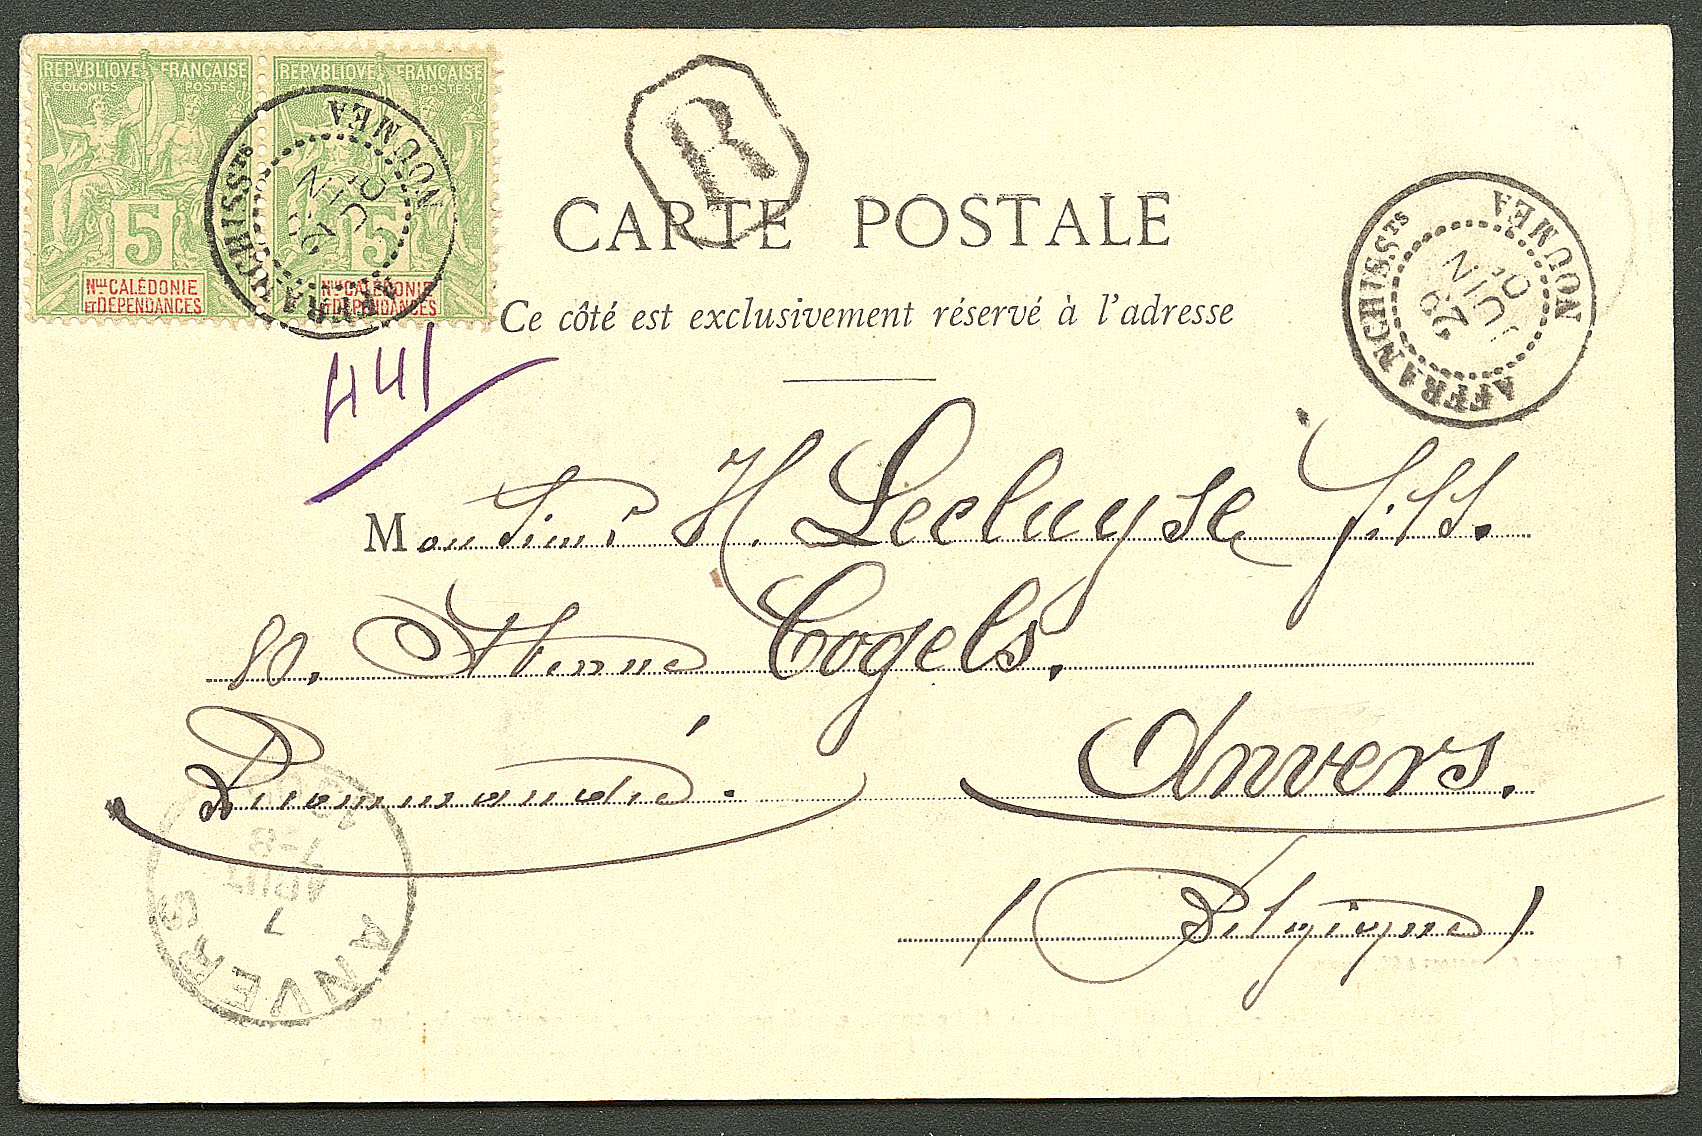 REPVBLIQVE FRANÇAISE
COLONIES POSTES
5
Nlle CALÉDONIE
ET DÉPENDANCES
REPVBLIQVE FRANÇAISE
POSTES
5
Nlle CALÉDONIE
ET DÉPENDANCES
NOUMEA
JUIN
AFFRANCHISSTS
R
NOUMEA
29
JUIN
AFFRANCHISSTS
CARTE POSTALE
Ce côté est exclusivement réservé à l'adresse
441
Monsieur H. Lecluyse fils.
80. Avenue Cogels.
Anvers.
Recommandé.
(Belgique)
ANVERS
7
AOUT
7-8